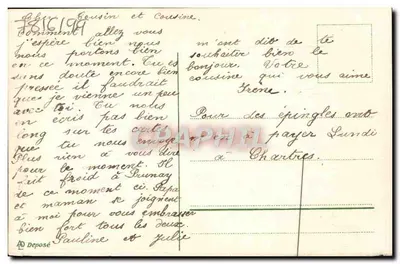 Cousin et Cousine
Comment allez vous
j'espère bien nous
nous portons bien
en ce moment. Tu es
sans doute encore bien
pressée il faudrait
que je vienne un peu
avec toi. Tu nous
en écris pas bien
long sur les cartes
que tu nous envoie
Plus rien à vous dire
pour le moment. Il
fait froid à
de ce moment ci. Papa
et maman se joignent
à moi pour vous embrasser
bien fort tous les deux.
Pauline et Julie
m'ont dit de te
souhaiter bien le
bonjour. Votre
cousine qui vous aime
Irène.
Pour les épingles ont
à payer Lundi
à Chartres.
DÉPOSÉ